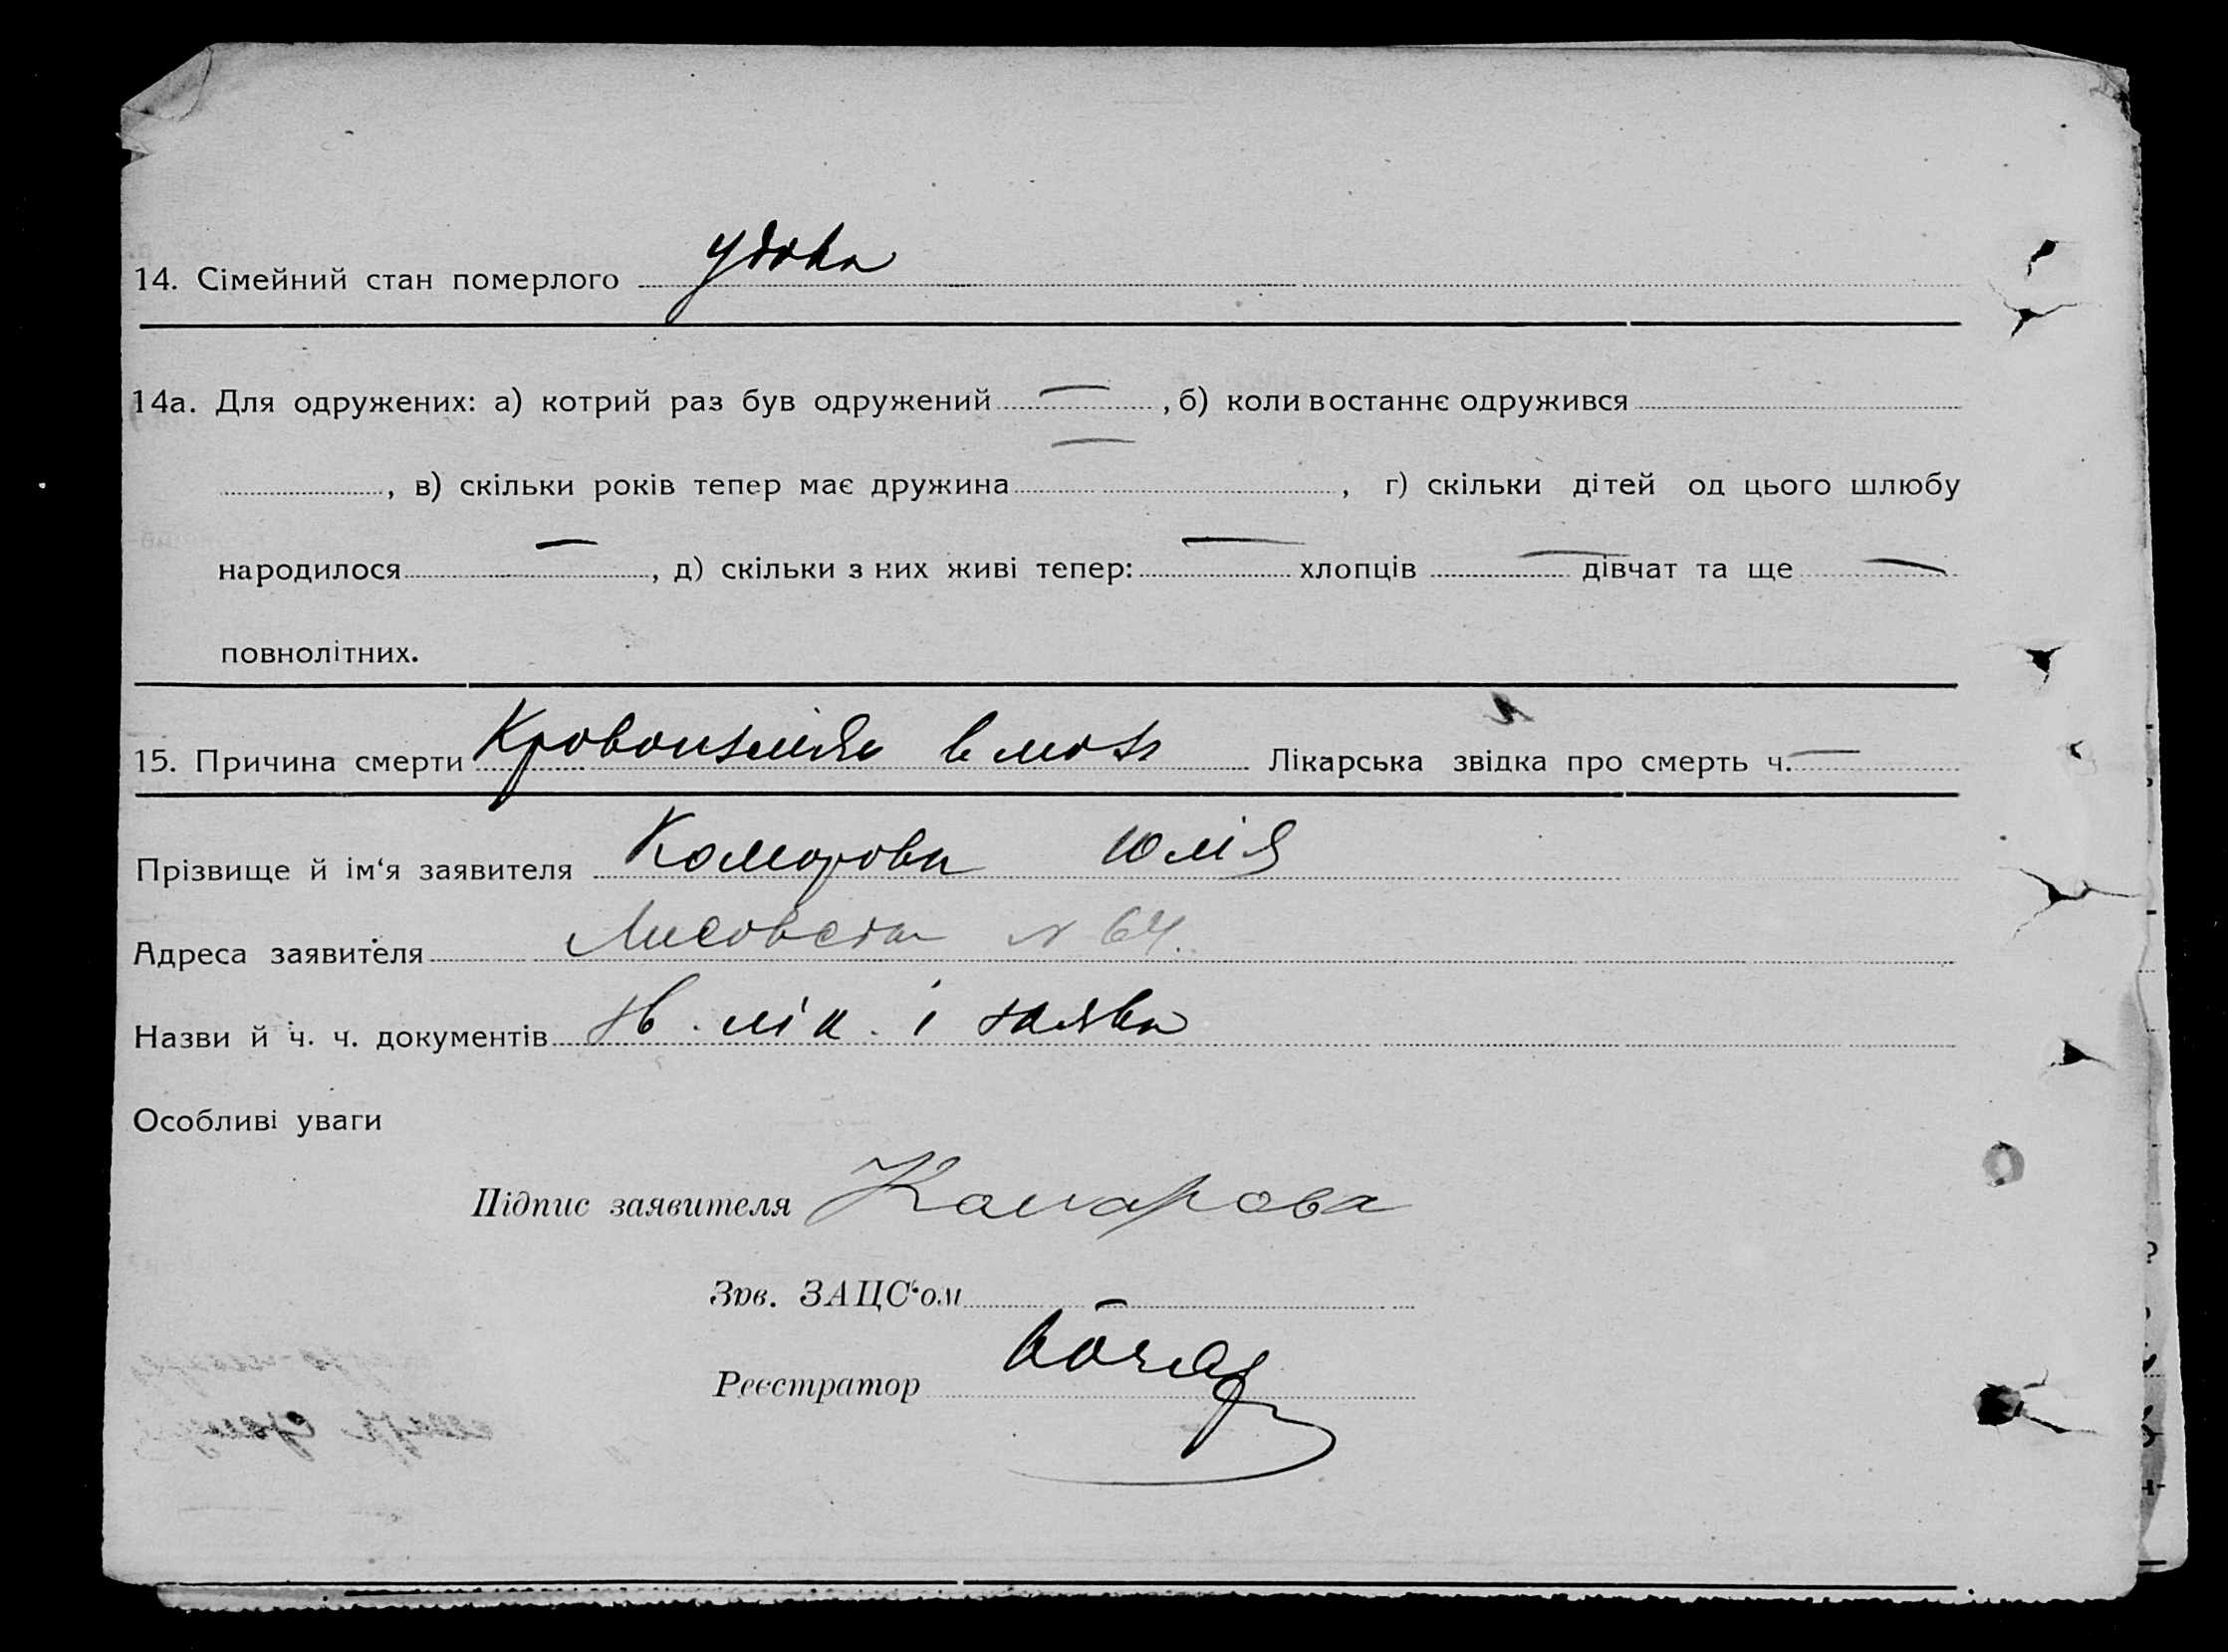 14. Сімейний стан померлого удова
14а. Для одружених: а) котрий раз був одружений —, б) коли востаннє одружився
, в) скільки років тепер має дружина —, г) скільки дітей од цього шлюбу
народилося —, д) скільки з них живі тепер: — хлопців — дівчат та ще —
повнолітних.
15. Причина смерти в мозг Лікарська звідка про смерть ч. —
Прізвище й ім‘я заявителя Комарова Юлія
Адреса заявителя N 64.
Назви й ч. ч. документів зв. лік. і заява
Особливі уваги
Підпис заявителя Комарова
Зав. ЗАЦС‘ом
Реєстратор